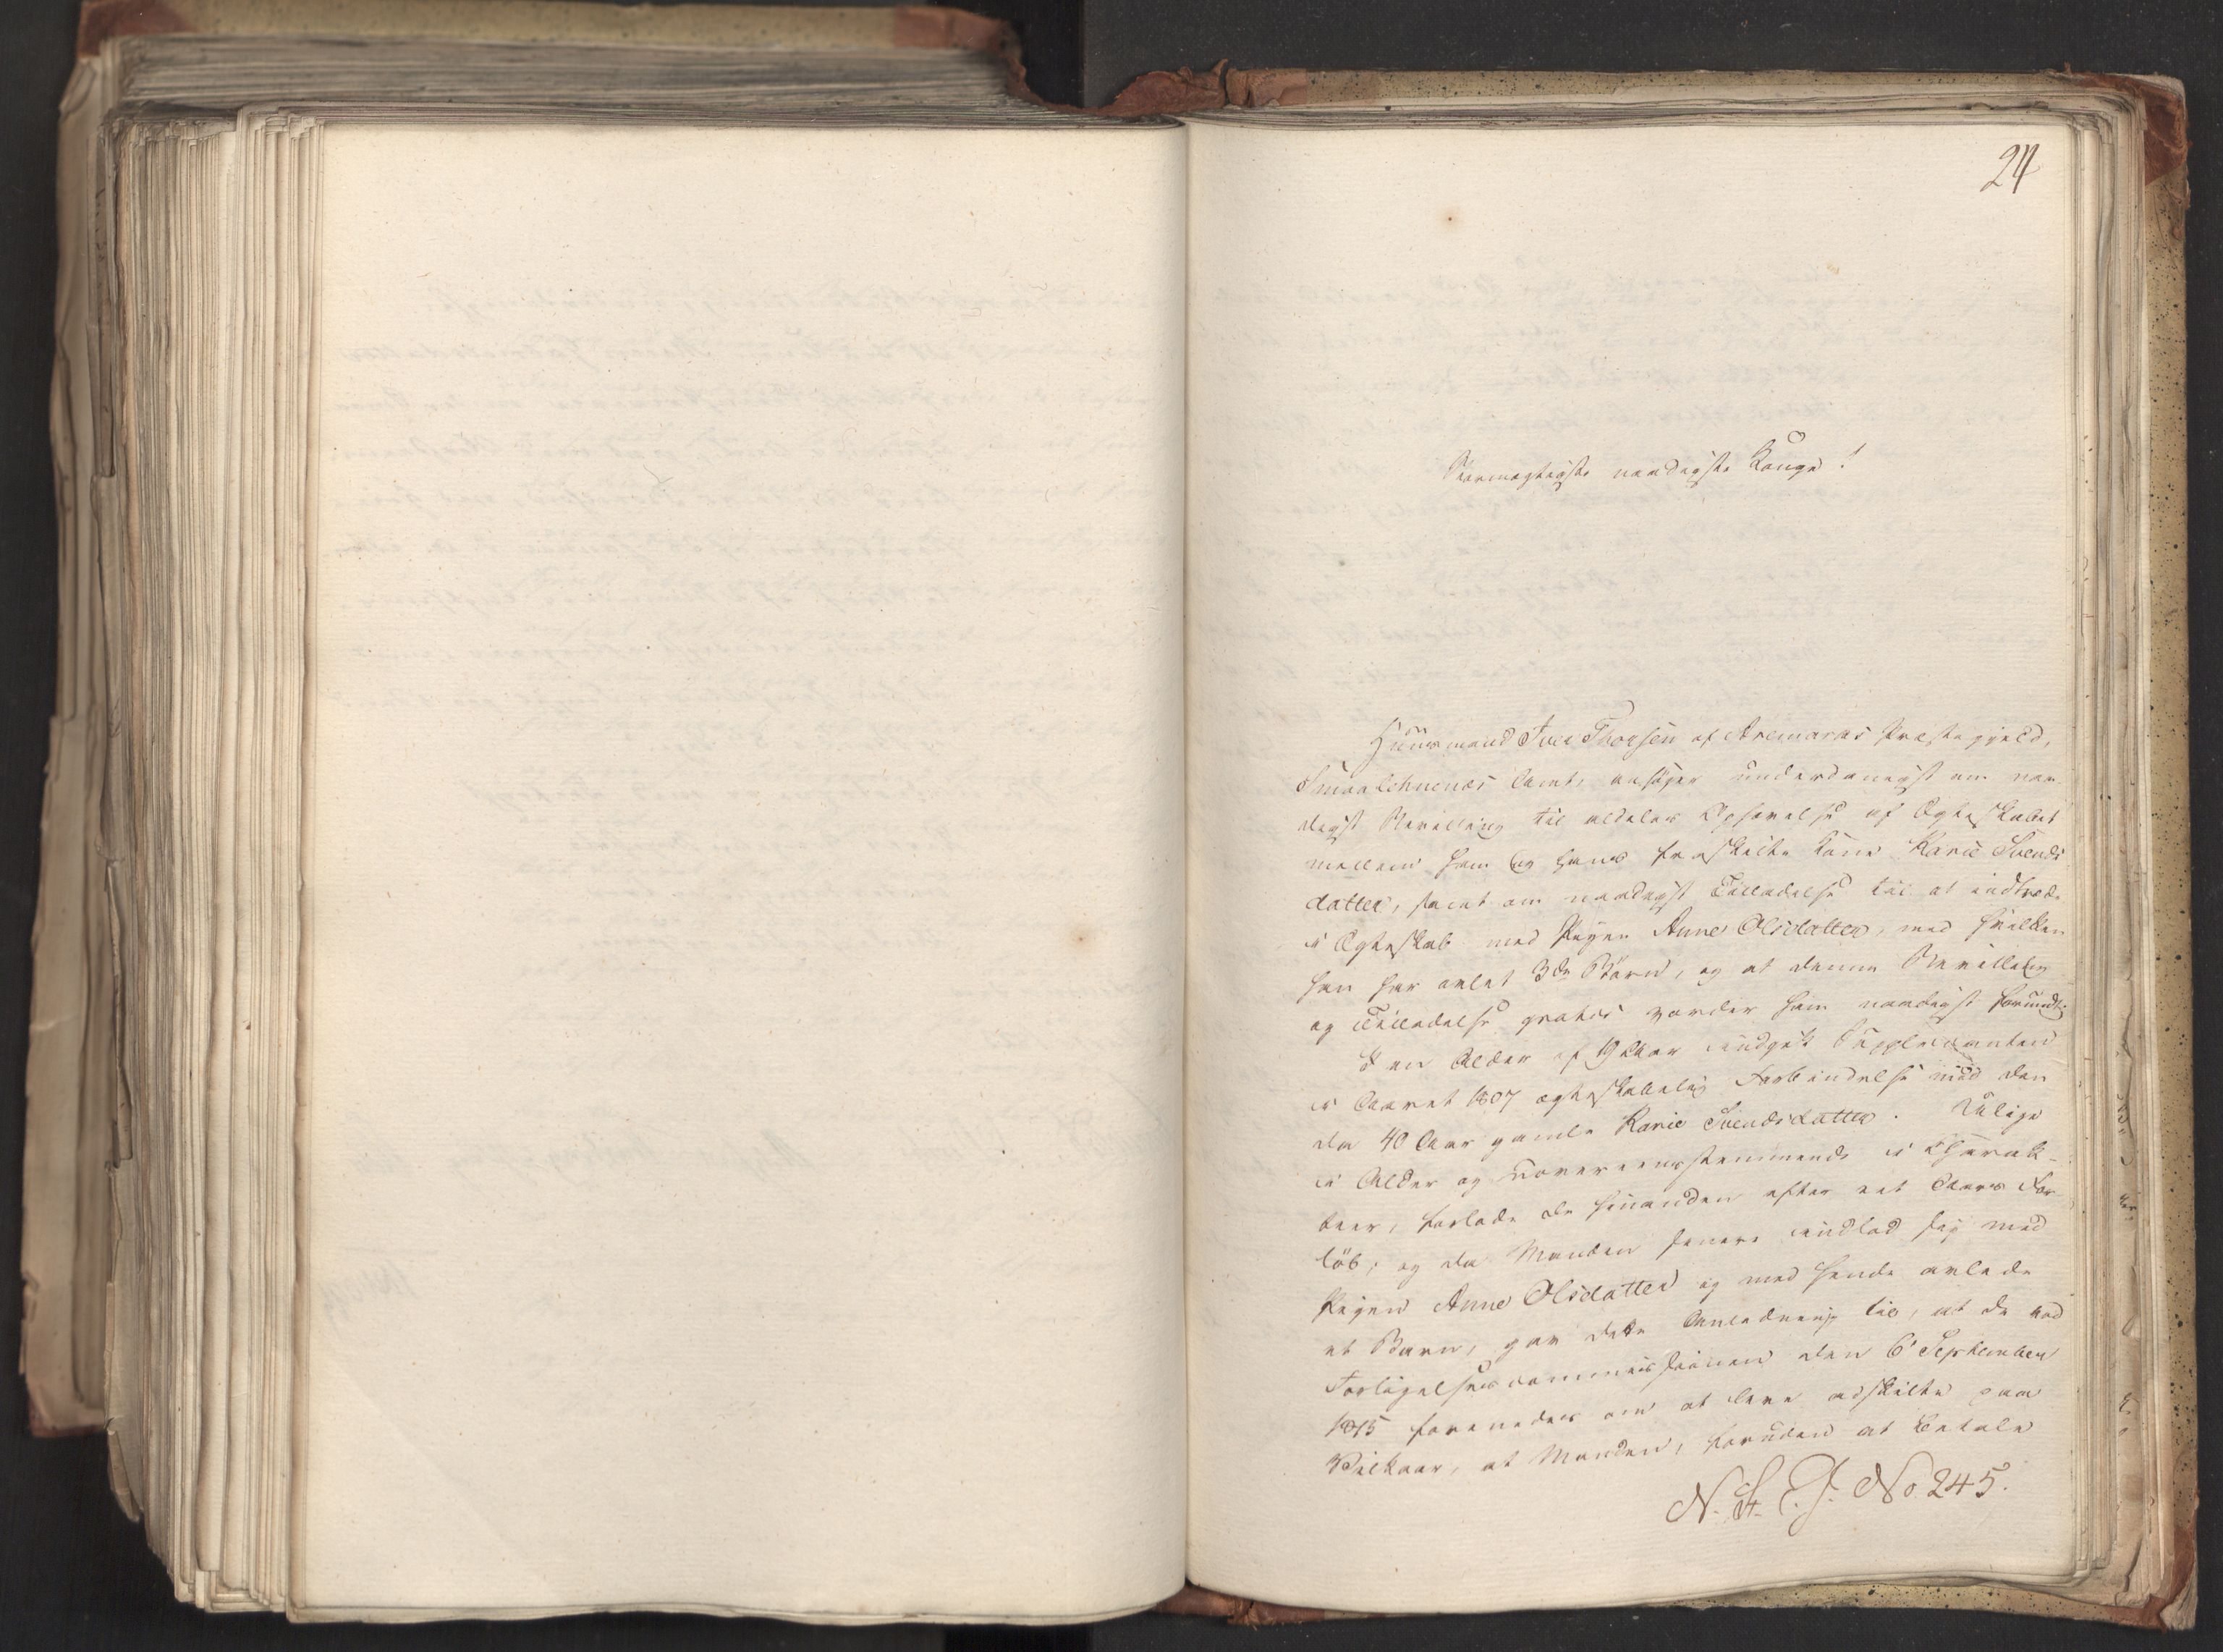 24
Stormægtigste naadigste Konge!
Huusmand Iver Thorsen af Aremarks Præstegjeld,
Smaalehnenes Amt, ansøger underdanigst om naa-
digst Bevilling til aldeles Ophævelse af Ægteskabet
mellem ham og hans fraskilte Kone Karie Svends
datter, samt om naadigst Tilladelse til at indtræde
i Ægteskab med Pigen Anne Olsdatter, med hvilken
han har avlet 3de Børn, og at denne Bevilling
og Tilladelse gratis vorder ham naadigst forundt.
I en Alder af 19 Aar indgik Supplicanten
i Aaret 1807 ægteskabelig Forbindelse med den
da 40 Aar gamle Karie Svendsdatter. Ulige
i Alder og uovereensstemmende i Charak-
teer, forlode de hinanden efter eet Aars For-
løb; og da Manden senere indlod sig med
Pigen Anne Olsdatter og med hende avlede
et Barn, gav dette Anledning til, at de ved
Forligelsescommissionen den 6 September
1815 forenedes om at leve adskilte paa
Vilkaar, at Manden, foruden at betale
N. St. E. J. No 245.